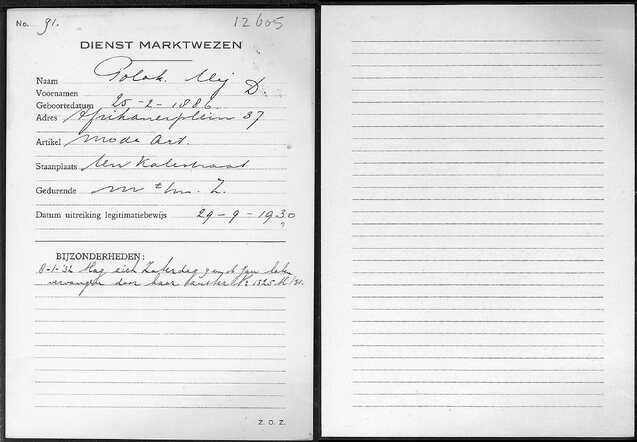 No. 91.
12605
DIENST MARKTWEZEN
Naam Polak. Mej
Voornamen D.
Geboortedatum 25-2-1886
Adres Afrikanerplein 37
Artikel mode Art.
Staanplaats Ten Katestraat
Gedurende m t/m. Z.
Datum uitreiking legitimatiebewijs 29-9-1930
?
BIJZONDERHEDEN:
-1-32 Mag zich Zaterdag laten
vervangen door haar No 1325
Z. O. Z.